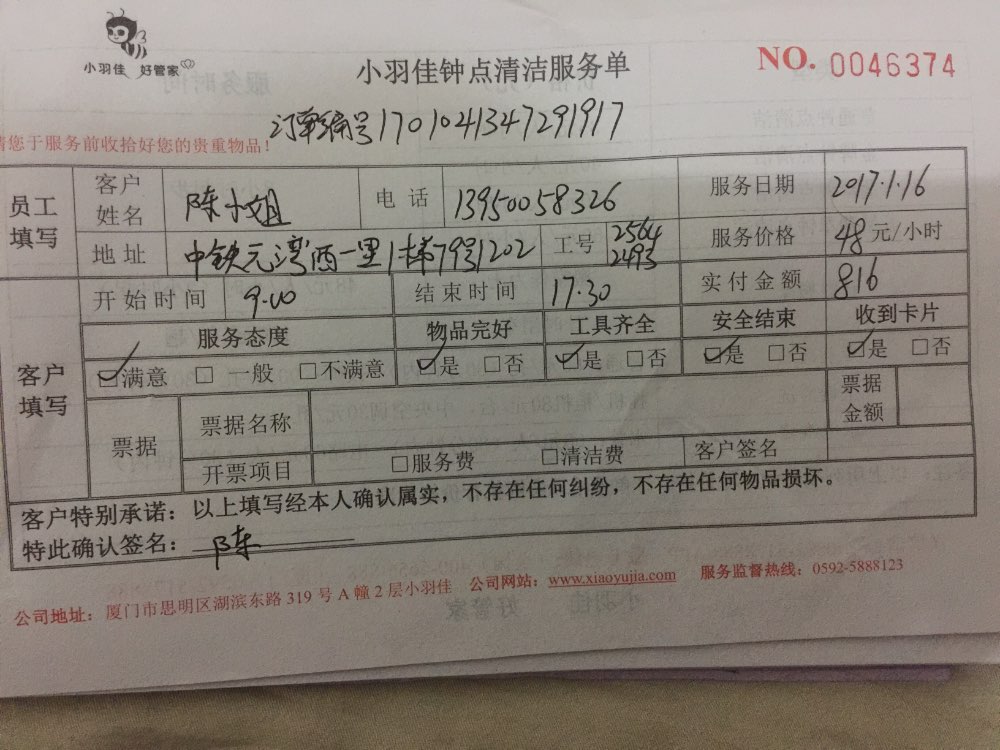 小羽佳 好管家
小羽佳钟点清洁服务单
NO. 0046374
订单编号 1701041347291917
请您于服务前收拾好您的贵重物品！
员工填写 客户姓名 陈小姐 电话 13950058326 服务日期 2017.1.16
地址 中铁元湾西一里1梯79号1202 工号 2564 2493 服务价格 48 元/小时
客户填写 开始时间 9.00 结束时间 17.30 实付金额 816
服务态度 物品完好 工具齐全 安全结束 收到卡片
☑满意 □ 一般 □不满意 ☑是 □否 ☑是 □否 ☑是 □否 ☑是 □否
票据 票据名称 票据金额
开票项目 □服务费 □清洁费 客户签名
客户特别承诺：以上填写经本人确认属实，不存在任何纠纷，不存在任何物品损坏。
特此确认签名： 陈
公司地址：厦门市思明区湖滨东路 319 号 A 幢 2 层小羽佳 公司网站：www.xiaoyujia.com 服务监督热线：0592-5888123